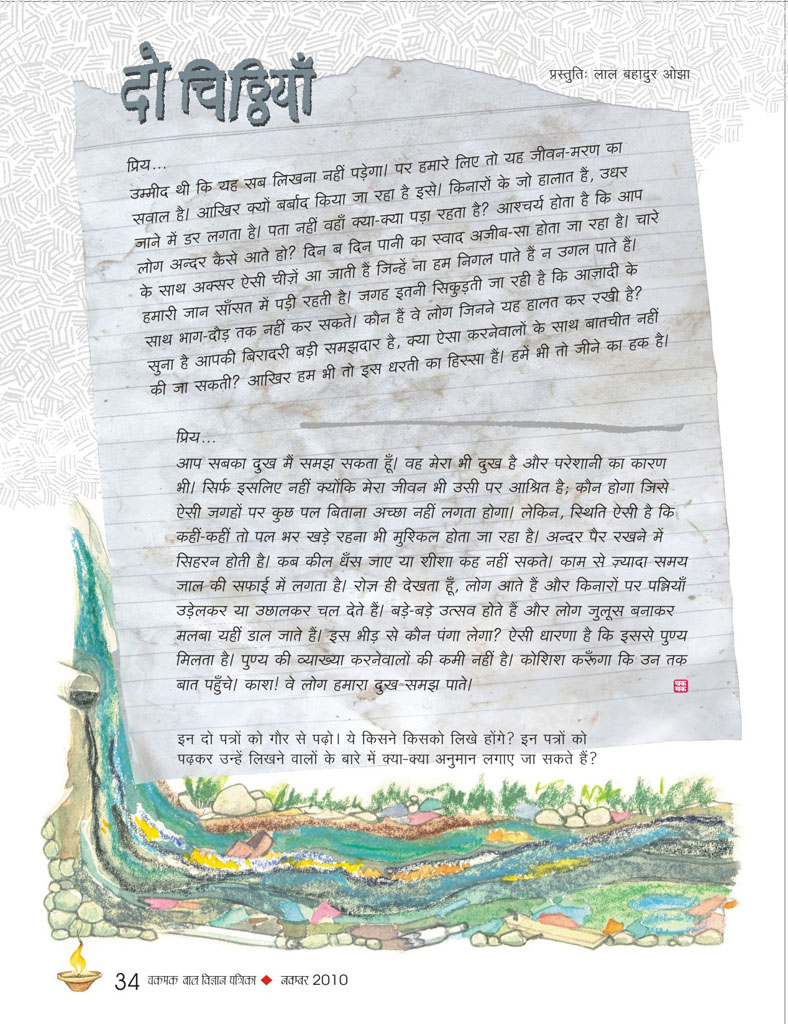 दो चिठ्ठियाँ
प्रस्तुतिः लाल बहादुर ओझा
प्रिय...
उम्मीद थी कि यह सब लिखना नहीं पड़ेगा। पर हमारे लिए तो यह जीवन-मरण का
सवाल है। आखिर क्यों बर्बाद किया जा रहा है इसे। किनारों के जो हालात हैं, उधर
जाने में डर लगता है। पता नहीं वहाँ क्या-क्या पड़ा रहता है? आश्चर्य होता है कि आप
लोग अन्दर कैसे आते हो? दिन ब दिन पानी का स्वाद अजीब-सा होता जा रहा है। चारे
के साथ अक्सर ऐसी चीज़ें आ जाती हैं जिन्हें ना हम निगल पाते हैं न उगल पाते हैं।
हमारी जान साँसत में पड़ी रहती है। जगह इतनी सिकुड़ती जा रही है कि आज़ादी के
साथ भाग-दौड़ तक नहीं कर सकते। कौन हैं वे लोग जिनने यह हालत कर रखी है?
सुना है आपकी बिरादरी बड़ी समझदार है, क्या ऐसा करनेवालों के साथ बातचीत नहीं
की जा सकती? आखिर हम भी तो इस धरती का हिस्सा हैं। हमें भी तो जीने का हक है।
प्रिय...
आप सबका दुख मैं समझ सकता हूँ। वह मेरा भी दुख है और परेशानी का कारण
भी। सिर्फ इसलिए नहीं क्योंकि मेरा जीवन भी उसी पर आश्रित है; कौन होगा जिसे
ऐसी जगहों पर कुछ पल बिताना अच्छा नहीं लगता होगा। लेकिन, स्थिति ऐसी है कि
कहीं-कहीं तो पल भर खड़े रहना भी मुश्किल होता जा रहा है। अन्दर पैर रखने में
सिहरन होती है। कब कील धँस जाए या शीशा कह नहीं सकते। काम से ज़्यादा समय
जाल की सफाई में लगता है। रोज़ ही देखता हूँ, लोग आते हैं और किनारों पर पन्नियाँ
उड़ेलकर या उछालकर चल देते हैं। बड़े-बड़े उत्सव होते हैं और लोग जुलूस बनाकर
मलबा यहीं डाल जाते हैं। इस भीड़ से कौन पंगा लेगा? ऐसी धारणा है कि इससे पुण्य
मिलता है। पुण्य की व्याख्या करनेवालों की कमी नहीं है। कोशिश करूँगा कि उन तक
बात पहुँचे। काश! वे लोग हमारा दुख-समझ पाते।
चक
मक
इन दो पत्रों को गौर से पढ़ो। ये किसने किसको लिखे होंगे? इन पत्रों को
पढ़कर उन्हें लिखने वालों के बारे में क्या-क्या अनुमान लगाए जा सकते हैं?
34 चकमक बाल विज्ञान पत्रिका ◆ नवम्बर 2010